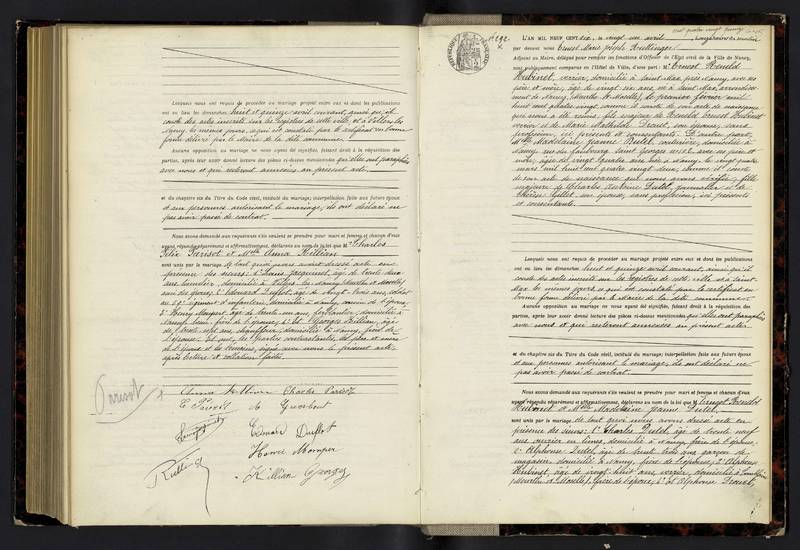 Lesquels nous ont requis de procéder au mariage projeté entre eux et dont les publications
ont eu lieu les dimanches huit et quinze avril courant, ainsi qu'il
conste des actes inscrits sur les registres de cette ville et à Villers les
Nancy les mêmes jours, ce qui est constaté par le certificat en bonne
forme délivré par le Maire de la dite commune.
Aucune opposition au mariage ne nous ayant été signifiée, faisant droit à la réquisition des
parties, après leur avoir donné lecture des pièces ci-dessus mentionnées qu'elles ont paraphées
avec nous et qui resteront annexées au présent acte
et du chapitre six du Titre du Code civil, intitulé du mariage; interpellation faite aux futurs époux
et aux personnes autorisant le mariage, ils ont déclaré ne
pas avoir passé de contrat.
Nous avons demandé aux requérants s'ils veulent se prendre pour mari et femme et chacun d'eux
ayant répondu séparément et affirmativement, déclarons au nom de la loi que M. Charles
Félix Parisot et Mlle Anna Killian
sont unis par le mariage de tout quoi nous avons dressé acte en
présence des sieurs: 1° Louis Jacquinot, âgé de trente deux
ans, domicilié à Villers les Nancy (Meurthe et Moselle)
ami de l'époux; 2° Edouard Dufflot, âgé de vingt trois ans, soldat
au régiment d'infanterie, domicilié à Nancy, cousin de l'époux
3° Henry, âgé de trente un ans, domicilié à
4° et Georges Killian, âgé
de trente sept ans, domicilié à Nancy, frère de
l'épouse. Et ont, les parties contractantes, les père et mère
de l'époux et les témoins, signé avec nous le présent acte
après lecture et collation faites.
Parisot
Anna Killian Charles Parisot
E Parisot
Edouard Dufflot
Henri
Killian Georges
N° 292
L'AN MIL NEUF CENT six, le vingt un avril
par devant nous Ernest Marie Joseph
Adjoint au Maire, délégué pour remplir les fonctions d'Officier de l'État civil de la Ville de Nancy,
sont publiquement comparus en l'Hôtel de Ville, d'une part: M. Ernest Renold
Hubinet, verrier, domicilié à Saint Max près Nancy, avec ses
père et mère, âgé de vingt six ans, né à Saint Max, arrondisse-
ment de Nancy, (Meurthe et Moselle), le premier février mil
huit cent quatre vingt, comme il conste de son acte de naissance
que nous a été remis, fils majeur de Renold Ernest Hubinet
verrier et de Marie Mathilde Drouet, son épouse, sans
profession, ici présents et consentants. Et d'autre part:
Mlle Madelaine Jeanne Dutel, couturière, domiciliée à
Nancy, rue du faubourg Saint Georges, avec ses père et
mère, âgée de vingt quatre ans, née à Nancy, le vingt quatre
mars mil huit cent quatre vingt deux, comme il conste
de son acte de naissance que nous avons vérifié, fille
majeure de Charles Antoine Dutel, journalier et de
son épouse, sans profession, ici présents
et consentants.
Lesquels nous ont requis de procéder au mariage projeté entre eux et dont les publications
ont eu lieu les dimanches huit et quinze avril courant, ainsi qu'il
conste des actes inscrits sur les registres de cette ville et à Saint
Max les mêmes jours, ce qui est constaté par le certificat en
bonne forme délivré par le Maire de la dite commune
Aucune opposition au mariage ne nous ayant été signifiée, faisant droit à la réquisition des
parties, après leur avoir donné lecture des pièces ci-dessus mentionnées qu'elles ont paraphées
avec nous et qui resteront annexées au présent acte
et du chapitre six du Titre du Code civil, intitulé du mariage; interpellation faite aux futurs époux
et aux personnes autorisant le mariage, ils ont déclaré ne
pas avoir passé de contrat.
Nous avons demandé aux requérants s'ils veulent se prendre pour mari et femme et chacun d'eux
ayant répondu séparément et affirmativement, déclarons au nom de la loi que M. Ernest Renold
Hubinet et Mlle Madelaine Jeanne Dutel
sont unis par le mariage de tout quoi nous avons dressé acte en
présence des sieurs: 1° Charles Dutel, âgé de trente neuf
ans, ouvrier en limes, domicilié à Nancy, frère de l'épouse
2° Alphonse Dutel, âgé de trente trois ans, garçon de
magasin, domicilié à Nancy, frère de l'épouse; 3° Alphonse
Hubinet, âgé de vingt huit ans, verrier, domicilié à
(Meurthe et Moselle), frère de l'époux; 4° et Alphonse Drouet,